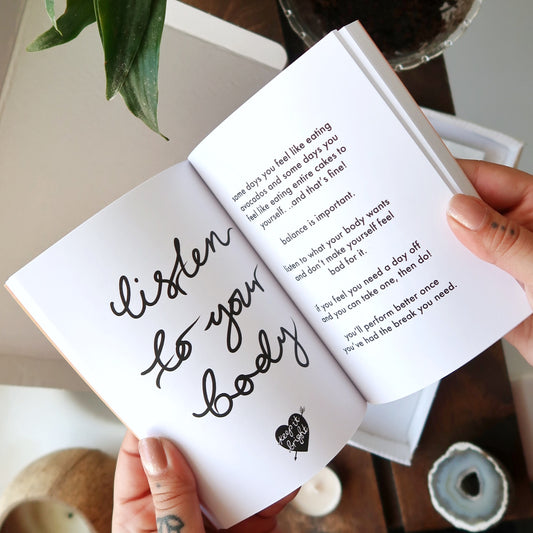 listen
to your
body
keep it
bright
some days you feel like eating
avocados and some days you
feel like eating entire cakes to
yourself. . .and that's fine!
balance is important.
listen to what your body wants
and don't make yourself feel
bad for it.
if you feel you need a day off
and you can take one, then do!
you'll perform better once
you've had the break you need.